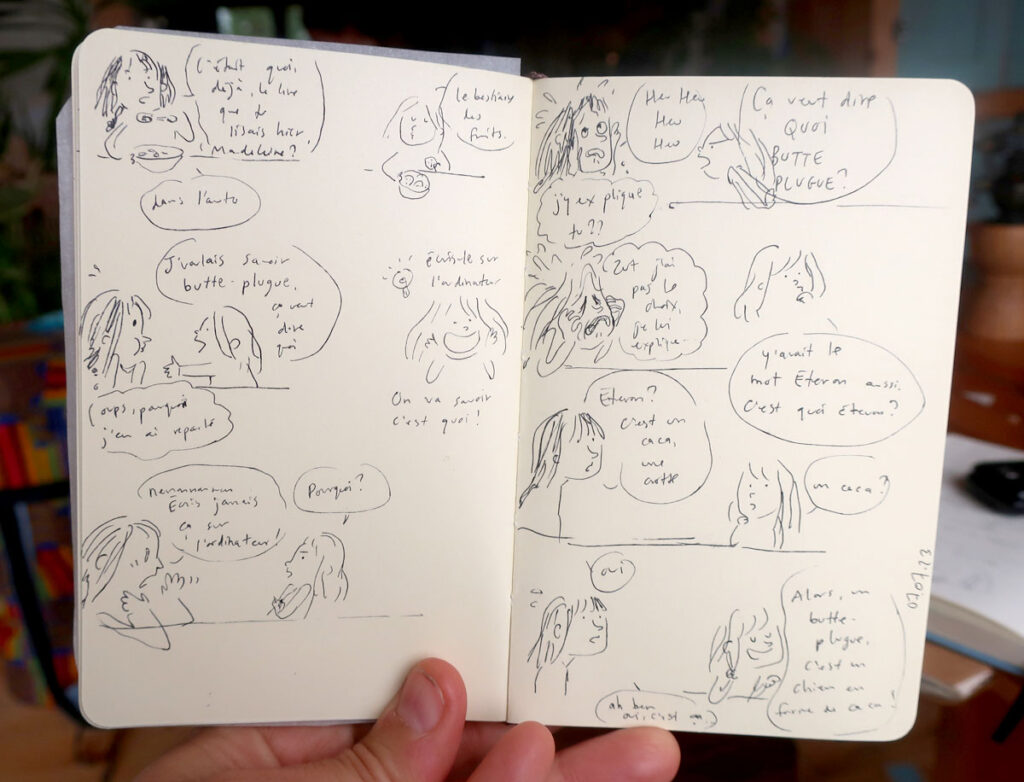 C'était quoi,
déjà, le livre
que tu
lisais hier
Madeleine?
le bestiaire
des
fruits.
dans l'auto
J'voulais savoir
butte-plugue,
ça veut
dire
quoi
oups, pourquoi
j'en ai reparlé
écris-le sur
l'ordinateur
On va savoir
c'est quoi!
Écris jamais
ça sur
l'ordinateur!
Pourquoi?
Heu Heu
Heu
Heu
Ça veut dire
QUOI
BUTTE
PLUGUE?
j'y explique
tu??
Zut j'ai
pas le
choix,
je lui
explique..
y'avait le
mot Étron aussi.
C'est quoi étron?
Étron?
C'est un
caca,
une
crotte
un caca?
oui
Alors, un
butte-
plugue,
c'est un
chien en
forme de caca!
ah ben
oui, c'est ça.
07.07.23